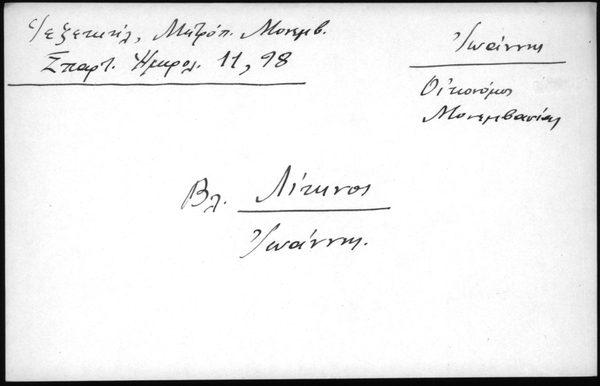 Ἰεζεκιήλ, Μητρόπ. Μονεμβ.
Σπαρτ. Ἡμερολ. 11, 98
Ἰωάννης
Οἰκονόμος
Μονεμβασίας
Βλ. Λίτινος
Ἰωάννης.